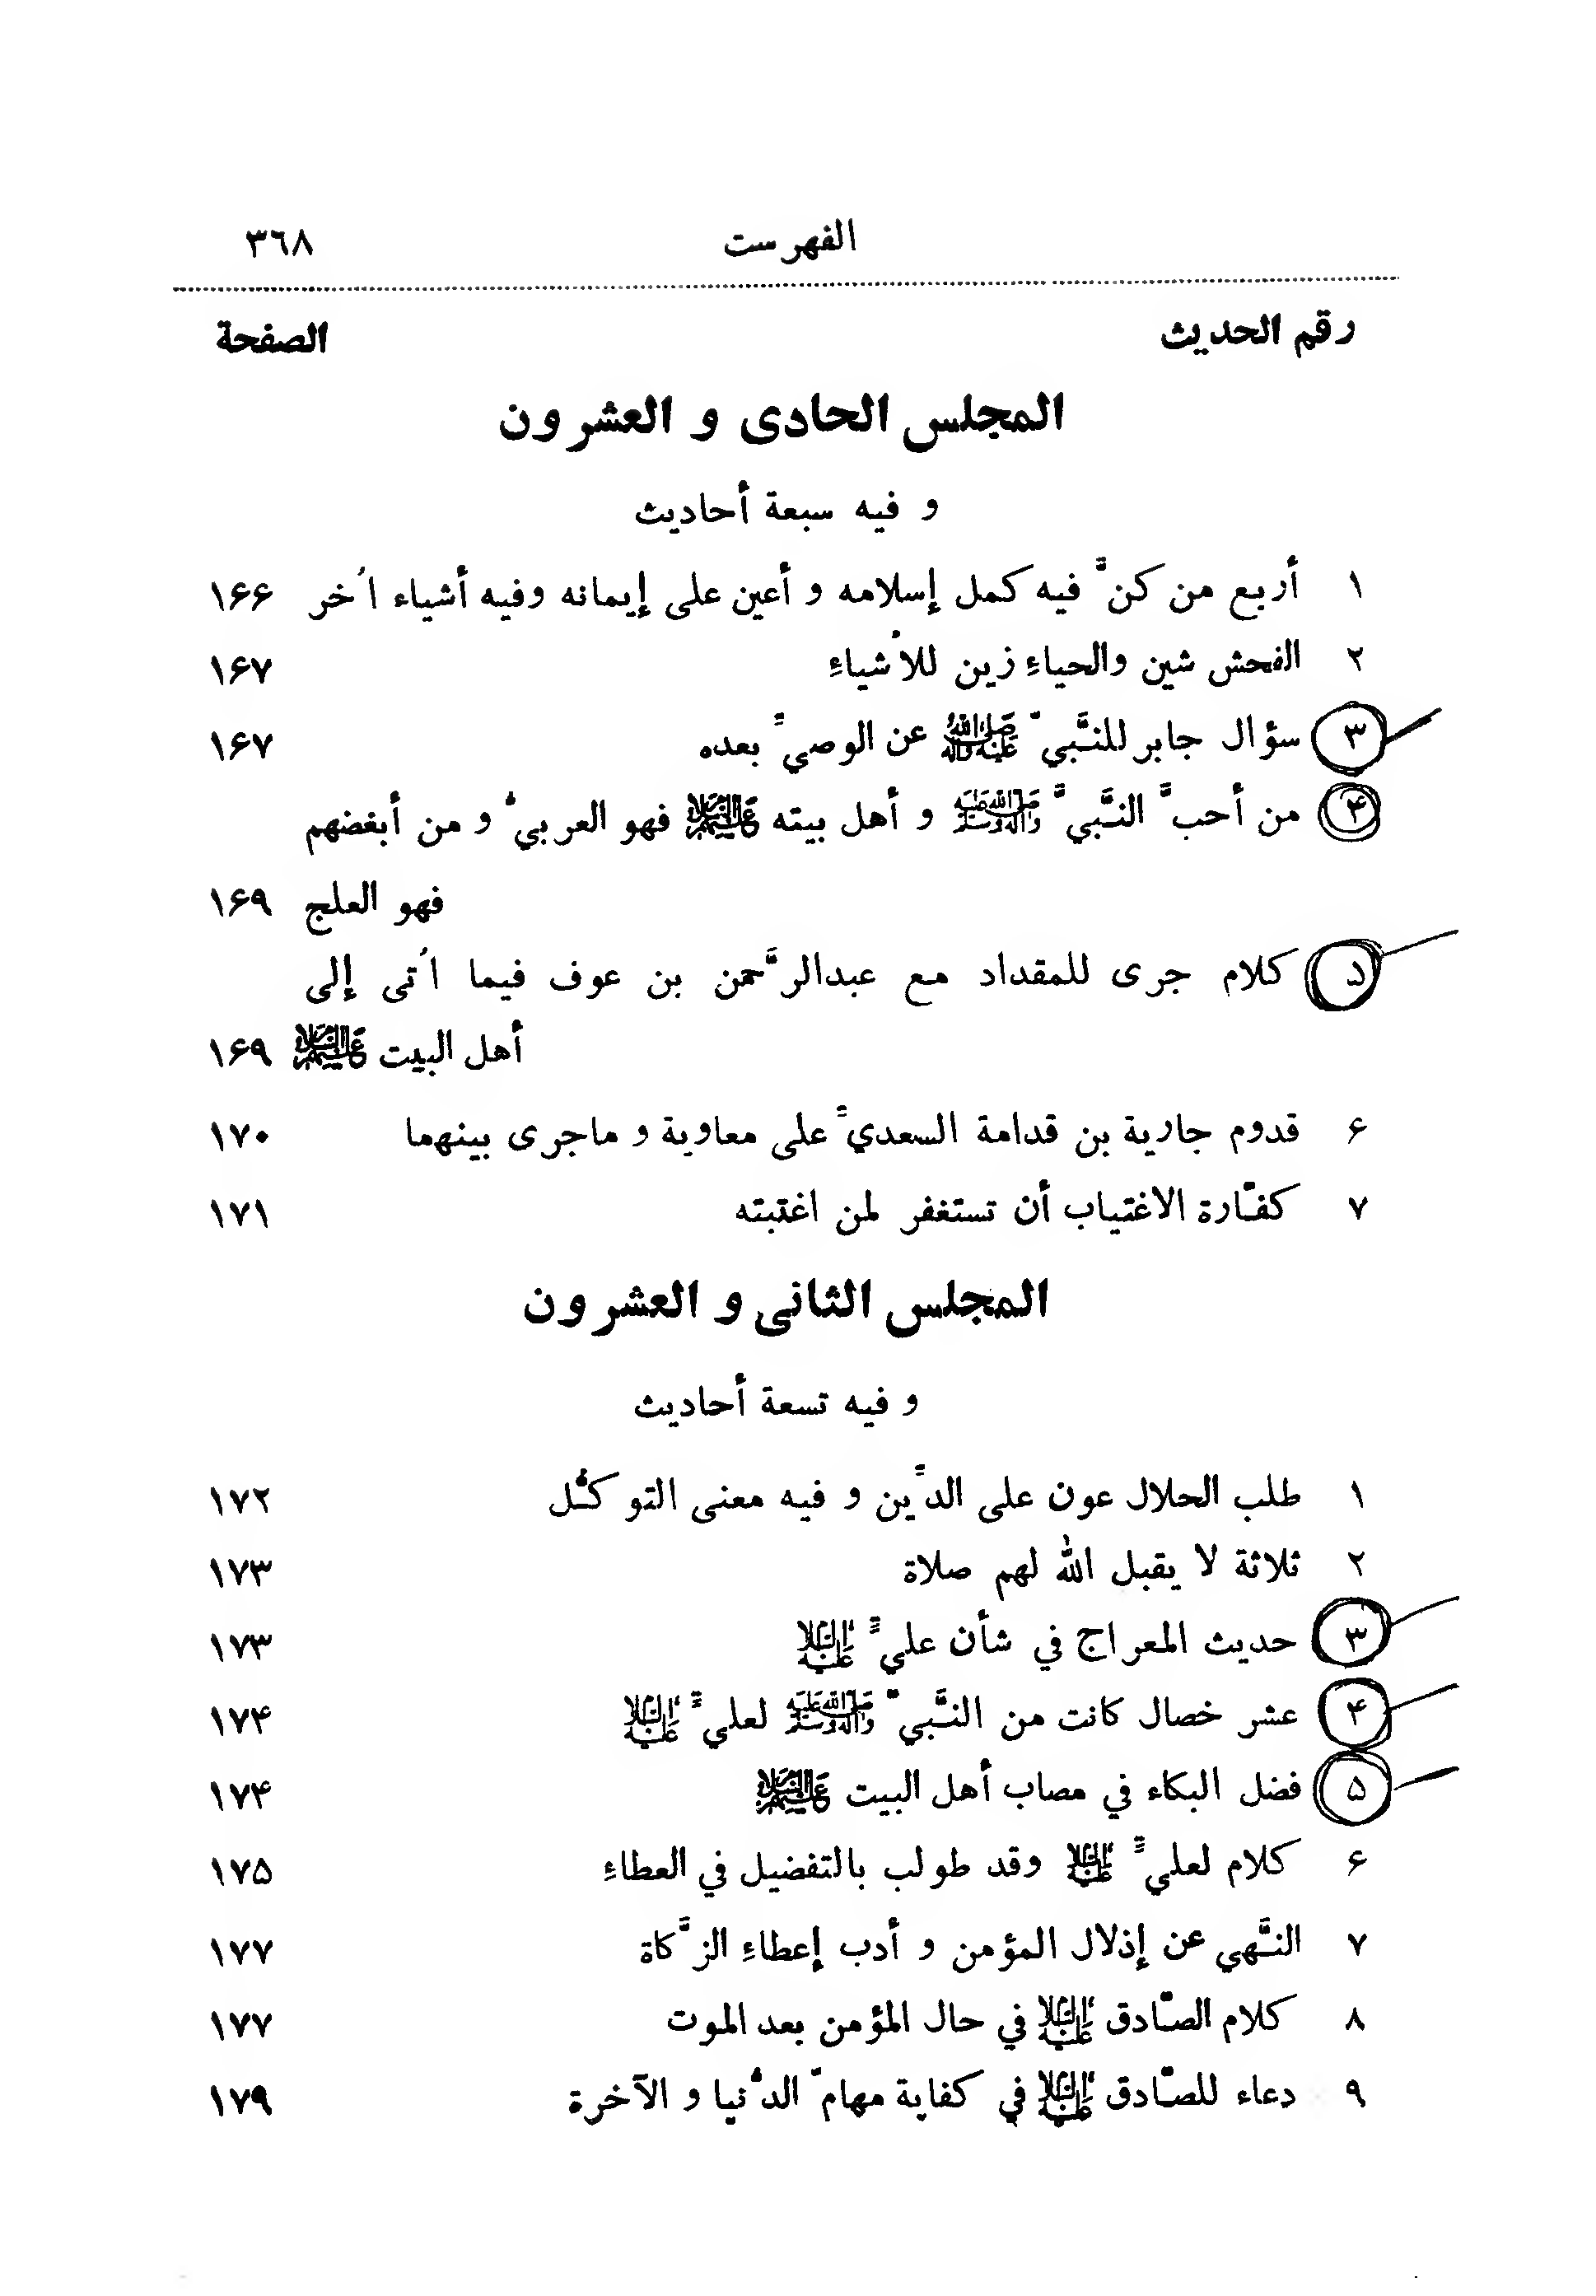 الفهرست ٣٦٨
رقم الحديث الصفحة
المجلس الحادى و العشرون
و فيه سبعة أحاديث
١ أربع من كنَّ فيه كمل إسلامه و أعين على إيمانه وفيه أشياء اُخر ١۶۶
٢ الفحش شين والحياءِ زين للأشياءِ ١۶٧
٣ سؤال جابر للنَّبيّ ﷺ عن الوصيِّ بعده ١۶٧
۴ من أحبَّ النَّبيَّ ﷺ و أهل بيته عليهم السلام فهو العربيُّ و من أبغضهم
فهو العلج ١۶٩
۵ كلام جرى للمقداد مع عبدالرَّحمن بن عوف فيما اُتى إلى
أهل البيت عليهم السلام ١۶٩
۶ قدوم جارية بن قدامة السعديِّ على معاوية و ماجرى بينهما ١٧٠
٧ كفّارة الاغتياب أن تستغفر لمن اغتبته ١٧١
المجلس الثانى و العشرون
و فيه تسعة أحاديث
١ طلب الحلال عون على الدِّين و فيه معنى التوكُّل ١٧٢
٢ ثلاثة لا يقبل الله لهم صلاة ١٧٣
٣ حديث المعراج في شأن عليٍّ عليه السلام ١٧٣
۴ عشر خصال كانت من النَّبيّ ﷺ لعليٍّ عليه السلام ١٧۴
۵ فضل البكاء في مصاب أهل البيت عليهم السلام ١٧۴
۶ كلام لعليٍّ عليه السلام وقد طولب بالتفضيل في العطاءِ ١٧۵
٧ النَّهي عن إذلال المؤمن و أدب إعطاءِ الزَّكاة ١٧٧
٨ كلام الصّادق عليه السلام في حال المؤمن بعد الموت ١٧٧
٩ دعاء للصّادق عليه السلام في كفاية مهامّ الدُّنيا و الآخرة ١٧٩